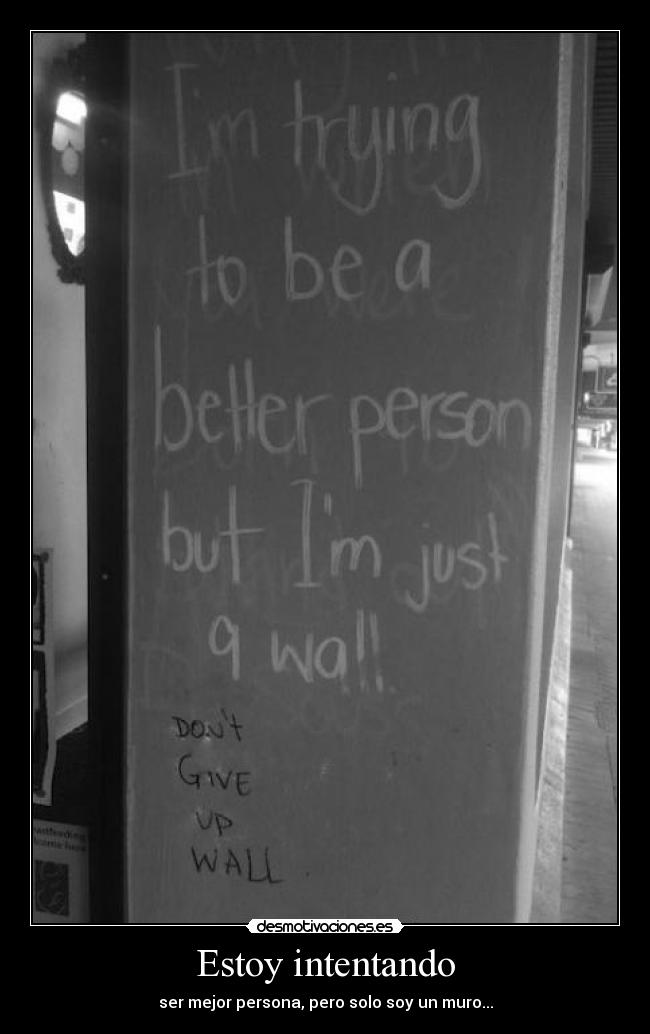 I'm trying
to be a
better person
but I'm just
a wall
DON'T
GIVE
UP
WALL
desmotivaciones.es
Estoy intentando
ser mejor persona, pero solo soy un muro...